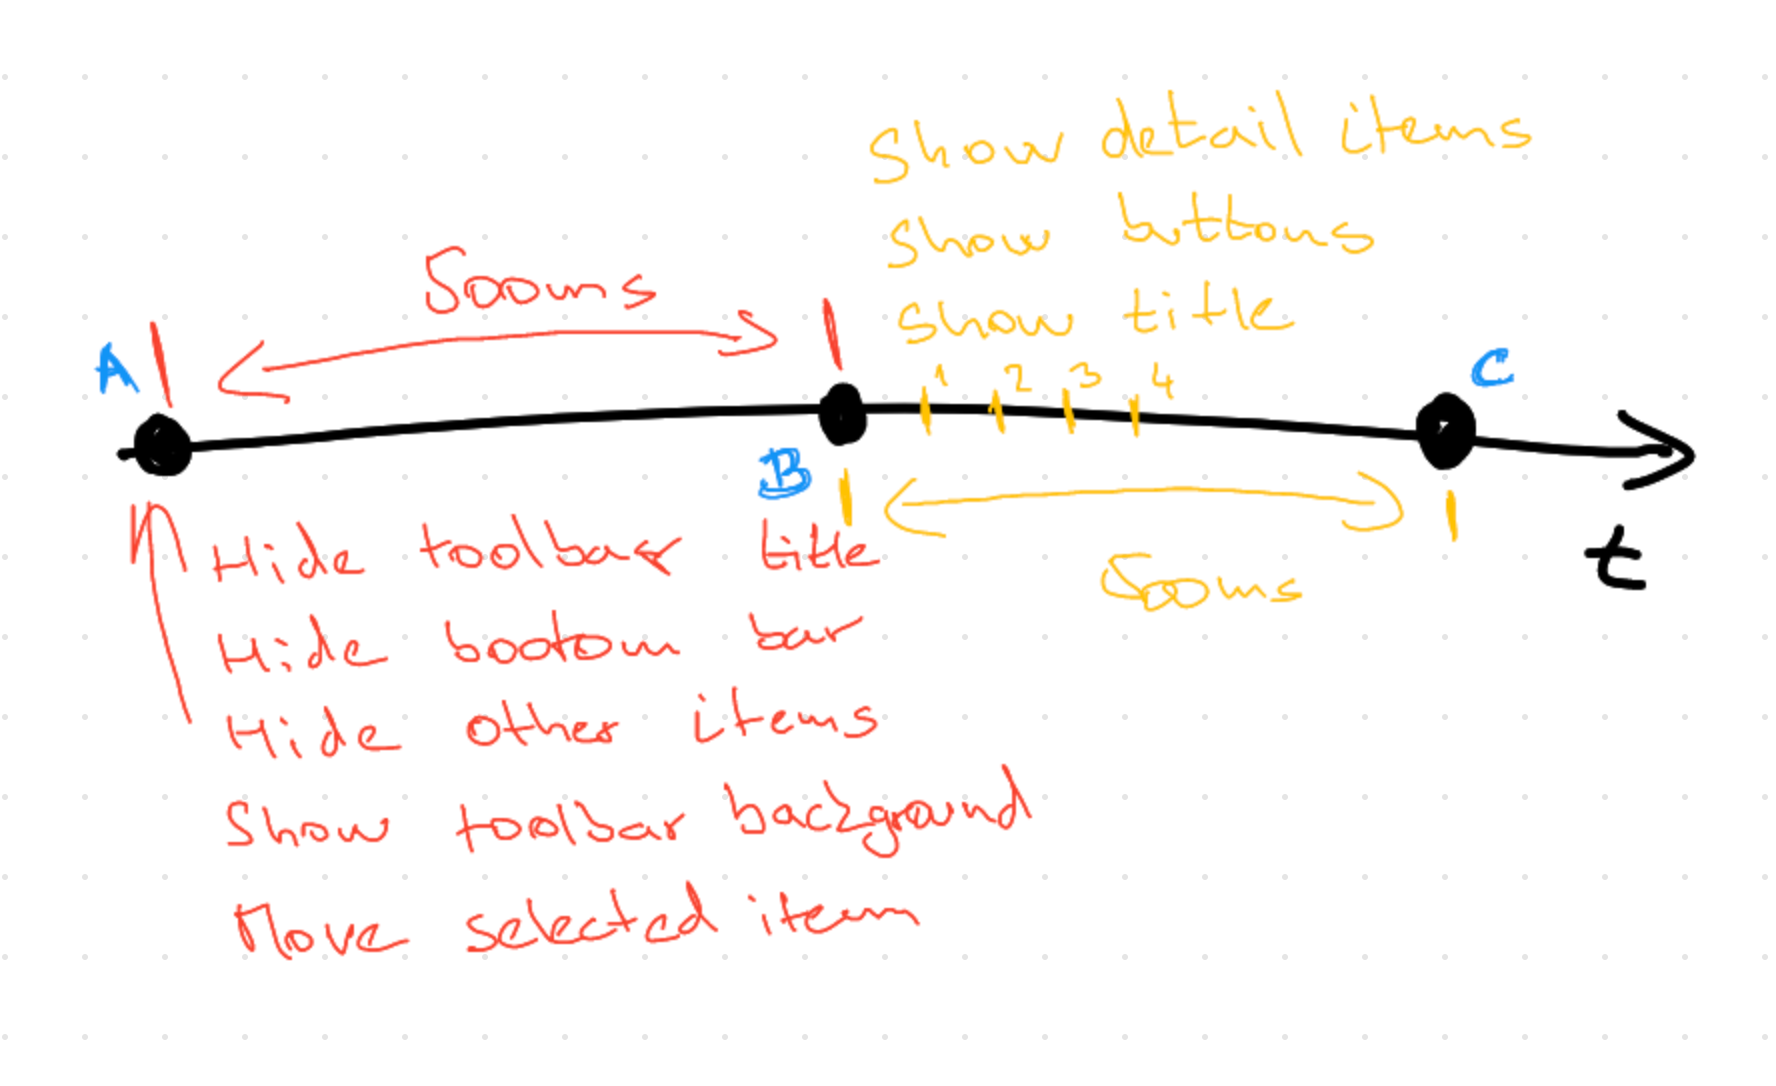 Show detail items
show buttons
show title
500ms
A
1 2 3 4
C
B
500ms
t
Hide toolbar title
Hide bootom bar
Hide other items
Show toolbar background
Move selected item